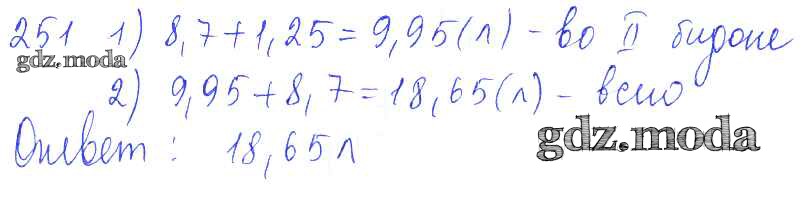 251 1) 8,7+1,25=9,95(л) - во II бидоне
gdz.moda
2) 9,95+8,7=18,65(л) - всего
Ответ: 18,65 л
gdz.moda